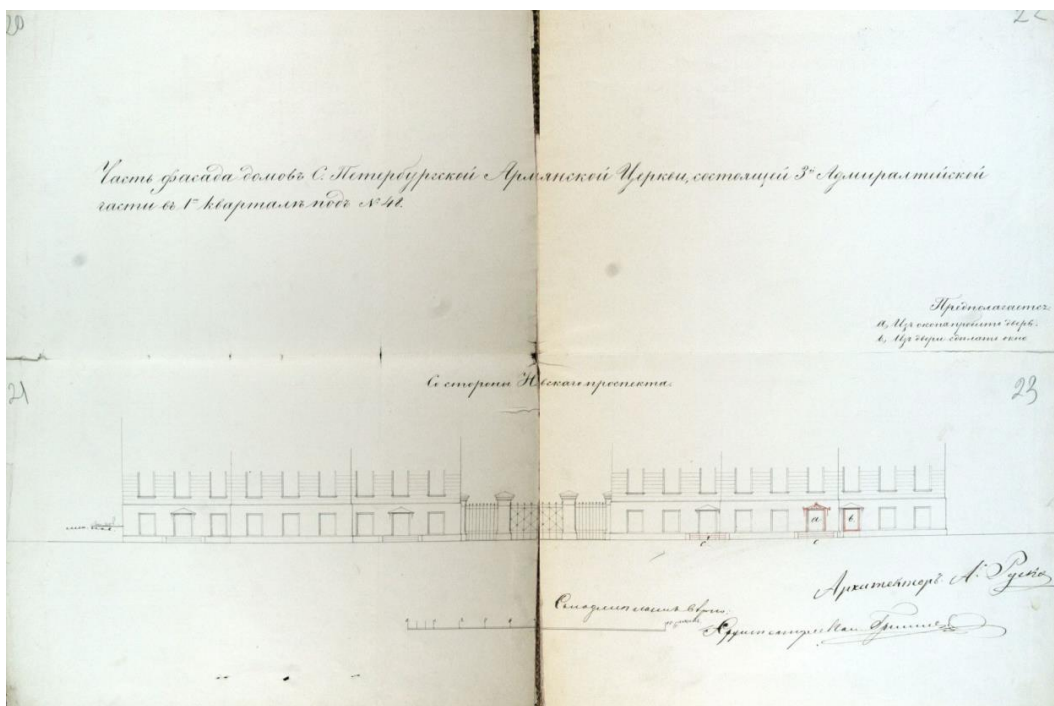 20
22
Часть фасада домовъ С. Петербургской Армянской Церкви, состоящей 3й Адмиралтейской
части въ 1м кварталѣ подъ № 42.
Предполагается:
a, Изъ окна пробить дверь.
b, Изъ двери сдѣлать окно
21
Со стороны Невскаго проспекта.
23
a
b
c
c
Архитекторъ А. Руско